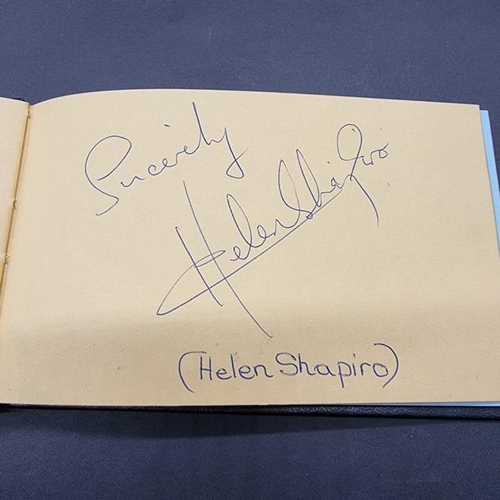 Sincerely
Helen Shapiro
(Helen Shapiro)